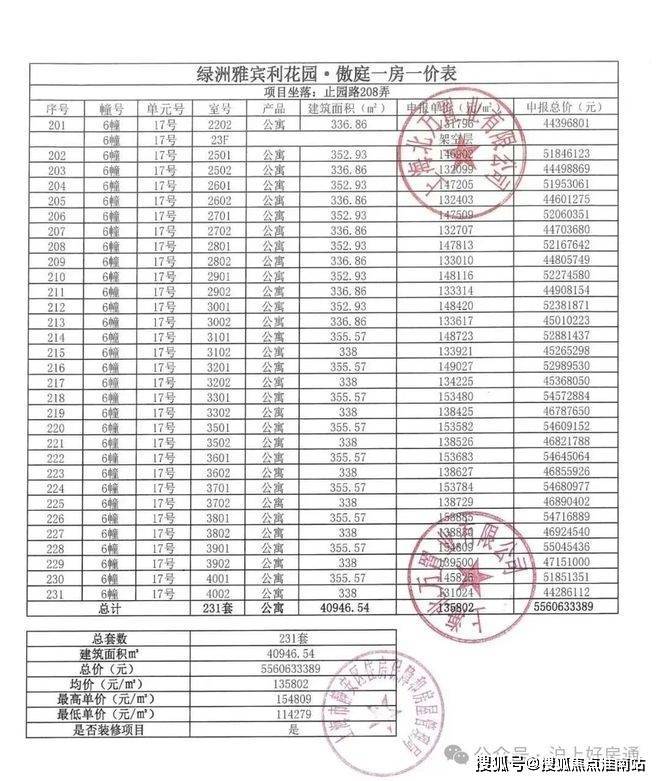 绿洲雅宾利花园·傲庭一房一价表
项目坐落：止园路208弄
序号 幢号 单元号 室号 产品 建筑面积（㎡） 申报单价（元/㎡） 申报总价（元）
201 6幢 17号 2202 公寓 336.86 131796 44396801
6幢 17号 23F 架空层
202 6幢 17号 2501 公寓 352.93 146902 51846123
203 6幢 17号 2502 公寓 336.86 132099 44498869
204 6幢 17号 2601 公寓 352.93 147205 51953061
205 6幢 17号 2602 公寓 336.86 132403 44601275
206 6幢 17号 2701 公寓 352.93 147509 52060351
207 6幢 17号 2702 公寓 336.86 132707 44703680
208 6幢 17号 2801 公寓 352.93 147813 52167642
209 6幢 17号 2802 公寓 336.86 133010 44805749
210 6幢 17号 2901 公寓 352.93 148116 52274580
211 6幢 17号 2902 公寓 336.86 133314 44908154
212 6幢 17号 3001 公寓 352.93 148420 52381871
213 6幢 17号 3002 公寓 336.86 133617 45010223
214 6幢 17号 3101 公寓 355.57 148723 52881437
215 6幢 17号 3102 公寓 338 133921 45265298
216 6幢 17号 3201 公寓 355.57 149027 52989530
217 6幢 17号 3202 公寓 338 134225 45368050
218 6幢 17号 3301 公寓 355.57 153480 54572884
219 6幢 17号 3302 公寓 338 138425 46787650
220 6幢 17号 3501 公寓 355.57 153582 54609152
221 6幢 17号 3502 公寓 338 138526 46821788
222 6幢 17号 3601 公寓 355.57 153683 54645064
223 6幢 17号 3602 公寓 338 138627 46855926
224 6幢 17号 3701 公寓 355.57 153784 54680977
225 6幢 17号 3702 公寓 338 138729 46890402
226 6幢 17号 3801 公寓 355.57 153885 54716889
227 6幢 17号 3802 公寓 338 138830 46924540
228 6幢 17号 3901 公寓 355.57 154809 55045436
229 6幢 17号 3902 公寓 338 139500 47151000
230 6幢 17号 4001 公寓 355.57 145825 51851351
231 6幢 17号 4002 公寓 338 131024 44286112
总计 231套 公寓 40946.54 135802 5560633389
上海北方置业有限公司
上海北方置业有限公司
总套数 231套
建筑面积㎡ 40946.54
总价（元） 5560633389
均价（元/㎡） 135802
最高单价（元/㎡） 154809
最低单价（元/㎡） 114279
是否装修项目 是
上海市静安区住房保障和房屋管理局
公众号·沪上好房通
搜狐号@搜狐焦点淮南站